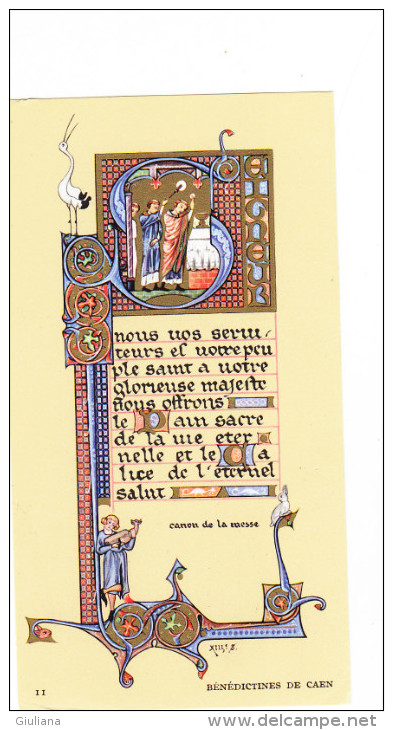 Seigneur
nous vos servi-
teurs et votre peu
ple saint a votre
glorieuse majeste
nous offrons
le Pain sacre
de la vie eter
nelle et le Ca
lice de l'eternel
salut
canon de la messe
XIIIe S.
11
BÉNÉDICTINES DE CAEN
Giuliana
www.delcampe.net